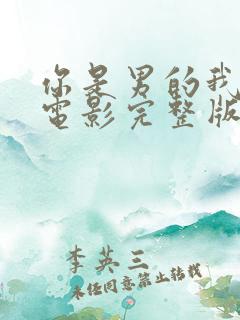 你是男的我
電影完整版
李英三
未经同意禁止转载